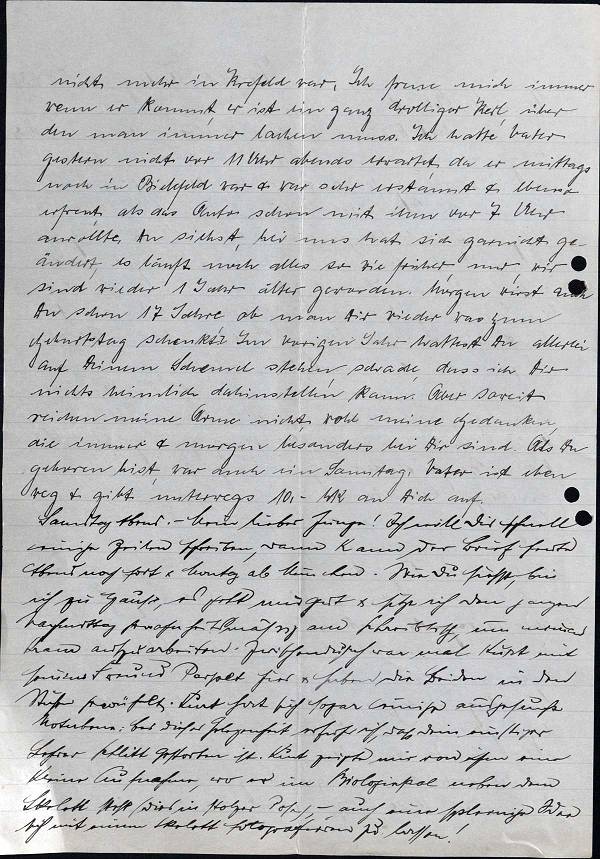 nicht mehr in Krefeld war. Ich freue mich immer
wenn er kommt, er ist ein ganz drolliger Kerl, über
den man immer lachen muss. Ich hatte Vater
gestern nicht vor 11 Uhr abends erwartet, da er mittags
noch in Bielefeld war & war sehr erstaunt & ebenso
erfreut, als das Auto schon mit ihm vor 7 Uhr
anrollte. Du siehst, bei uns hat sich garnicht ge-
ändert, es läuft noch alles so wie früher nur, wir
sind wieder 1 Jahr älter geworden. Morgen wirst auch
Du schon 17 Jahre, ob man Dir wieder was zum
Geburtstag schenkt? Im vorigen Jahr hattest Du allerlei
auf Deinem Schemel stehen, schade, dass ich Dir
nichts heimlich dahinstellen kann. Aber soweit
reichen meine Arme nicht, wohl meine Gedanken,
die immer & morgen besonders bei Dir sind. Als Du
geboren bist, war auch ein Samstag. Vater ist eben
weg & gibt unterwegs 10,- Mk an Dich auf.
Samstag Abend. - Mein lieber Junge! Ich will Dir schnell
einige Zeilen schreiben, dann kann der Brief heute
Abend noch fort & Montag ab München. Wie Du siehst, bin
ich zu Hause, es geht mir gut & sitze ich den ganzen
Nachmittag am Schreibtisch, um
aufzuarbeiten. Zwischendurch war mal Kurt mit
seinem Freund hier & haben die Beiden in der
gewühlt. Kurt hat sich sogar einige ausgesucht
bei dieser Gelegenheit erfuhr ich dass dein einstiger
Lehrer gestorben ist. Kurt zeigte mir von ihm eine
kleine Aufnahme, wo er im Biologiesaal neben dem
Skelett steht - auch eine Idee
sich mit einem Skelett fotografieren zu lassen!